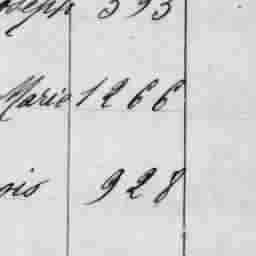 oseph 393
Marie 1266
ois 928